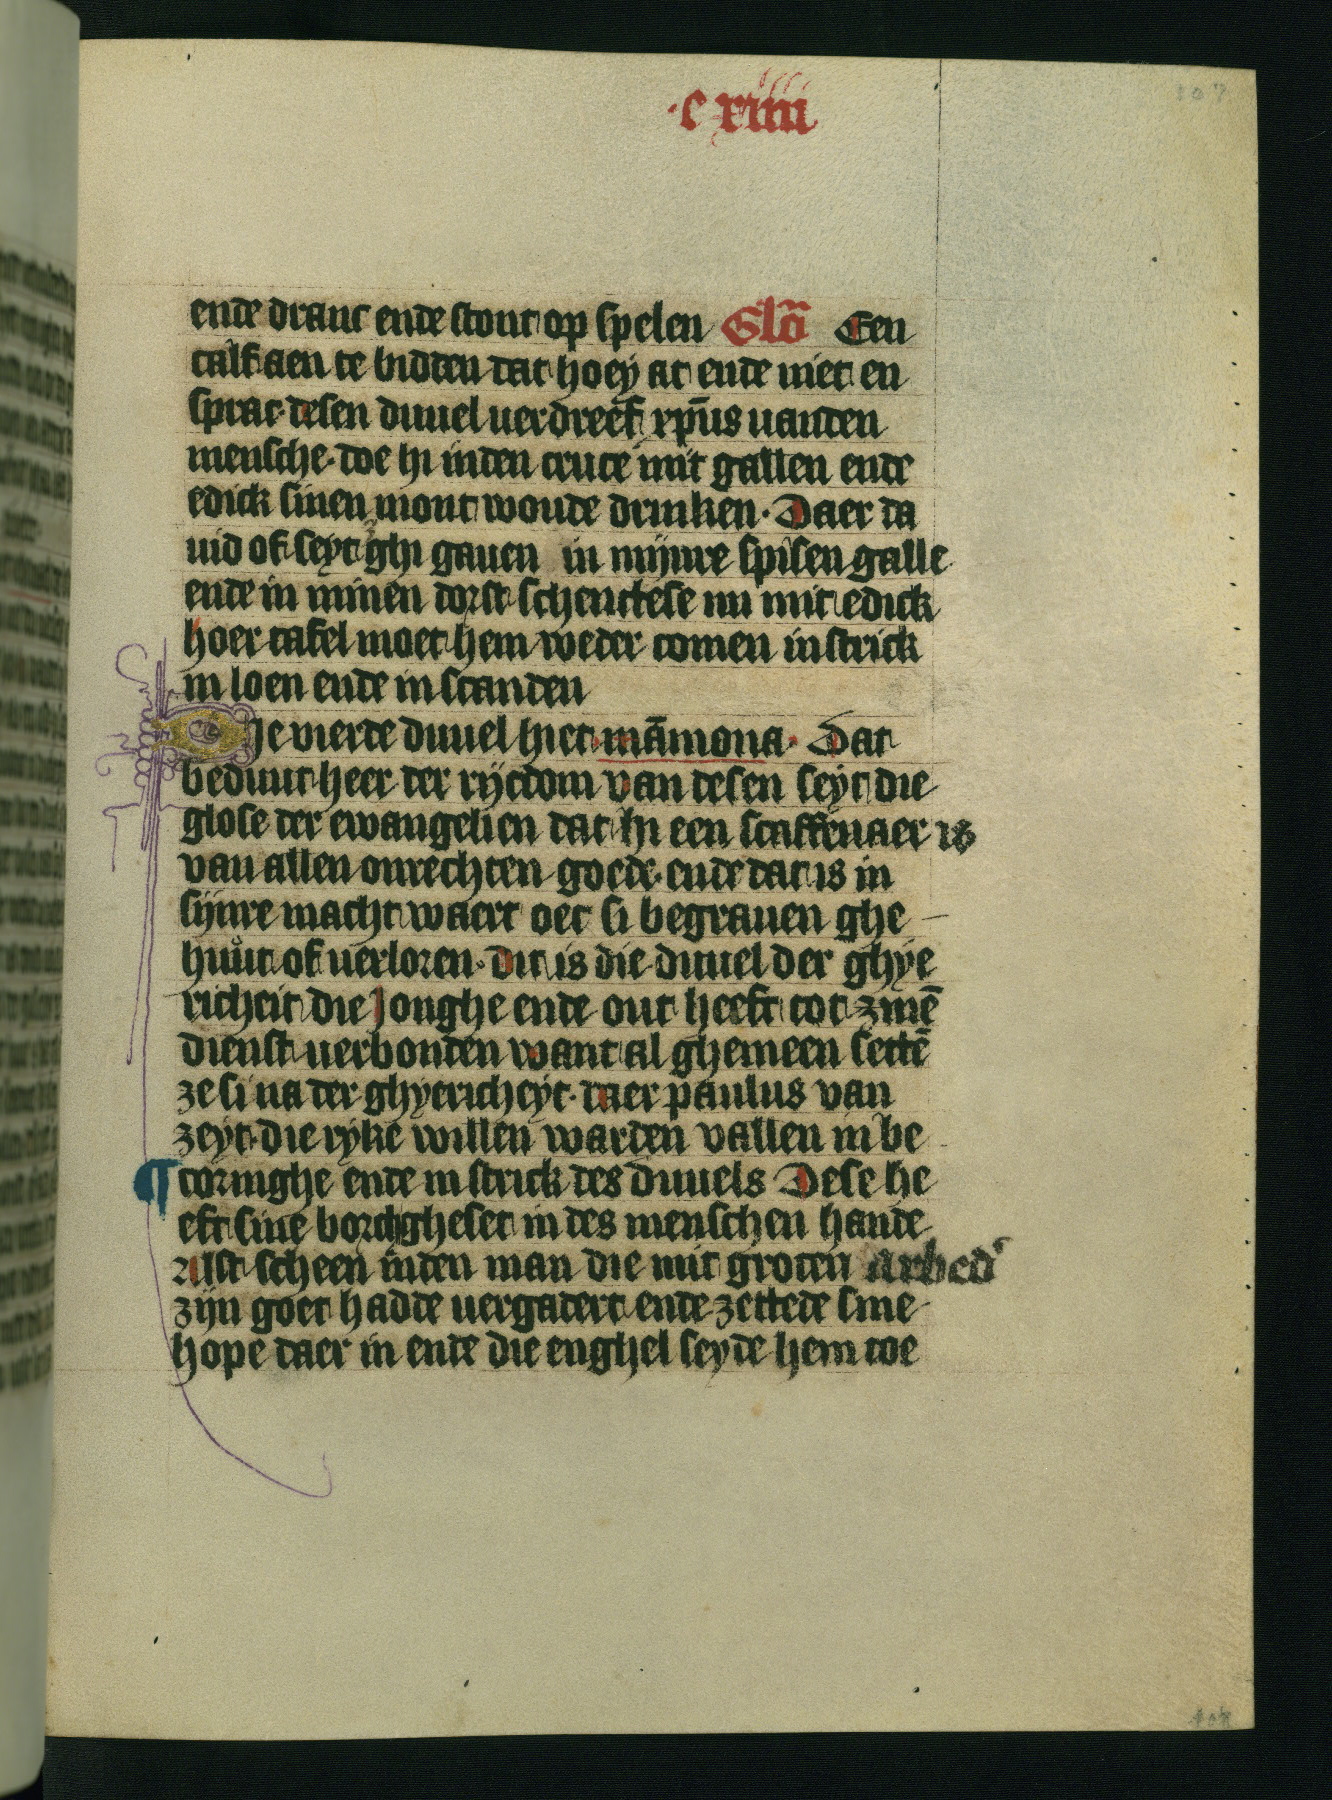 ·c xiiii
107
ende dranc ende stont op spelen Glō Een
calf aen te bidden dat hoey at ende niet en
sprac· desen duuel verdreef xp̄us vanden
mensche· doe hi inden cruce mit gallen ende
edick sinen mont woude drinken· Daer da
uid of seyt ghi gauen in mijnre spisen galle
ende in minen dorst schenctese mi mit edick
hoer tafel moet hem weder comen in strick
in loen ende in scanden
Die vierde duuel hiet· māmona· Dat
beduut heer der rijcdom van desen seyt die
glose der ewangelien dat hi een scaffenaer is
van allen onrechten goede· ende dat is in
sijnre macht waert oec si begrauen ghe
huut of verloren· dit is die duuel der ghye
richeit die jonghe ende out heeft tot zinē
dienst verbonden want al ghemeen settē
ze si na der ghyericheyt· daer paulus van
zeyt· die ryke willen warden vallen in be
¶ coringhe ende in strick des duuels Dese he
eft sine borch gheset in des menschen hande
Alst scheen inden man die mit groten arbed'
zijn goet hadde vergadert ende zettede sine
hope daer in ende die enghel seyde hem toe
108